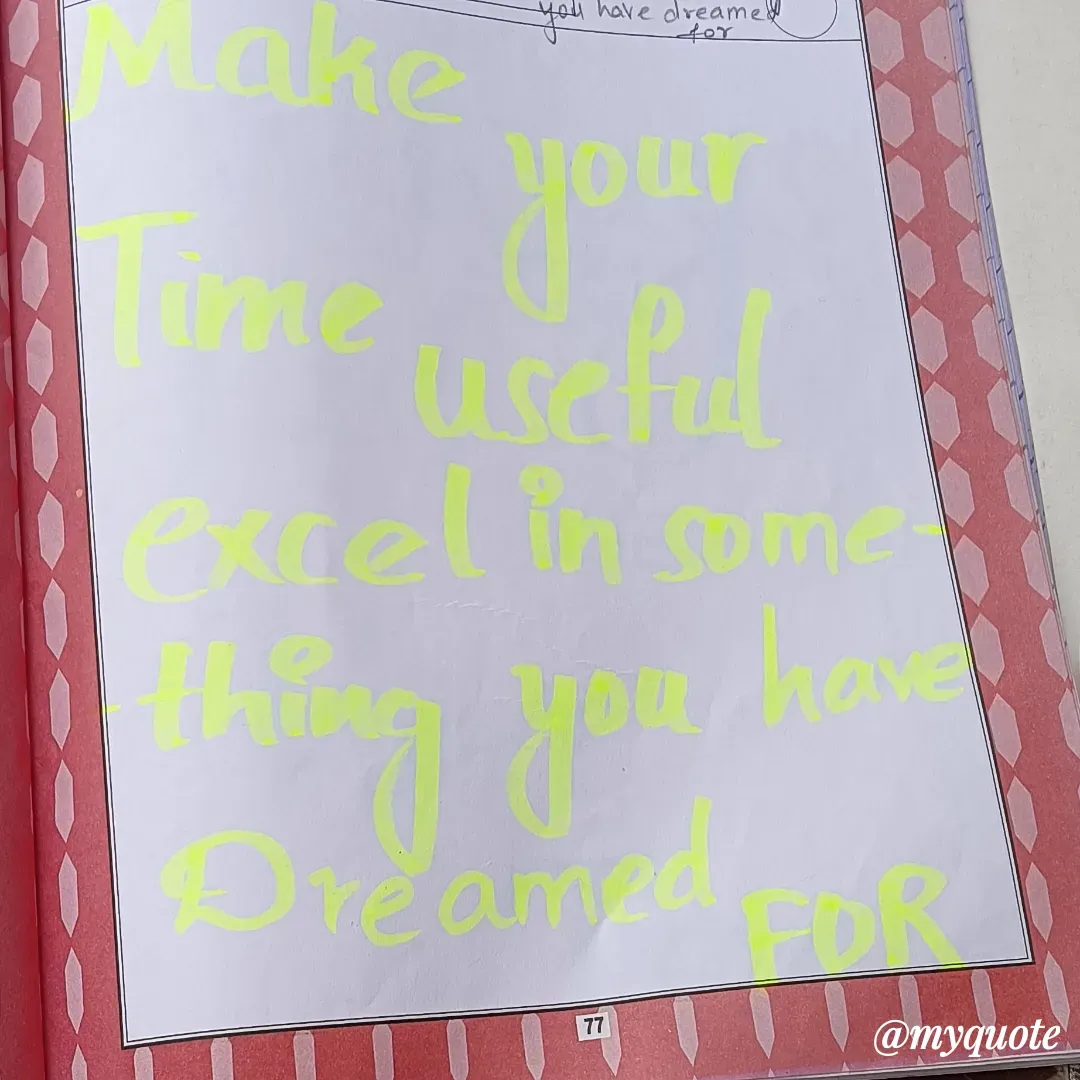 you have dreamed
for
Make
your
Time
useful
excel in some-
-thing you have
Dreamed
FOR
77
@myquote